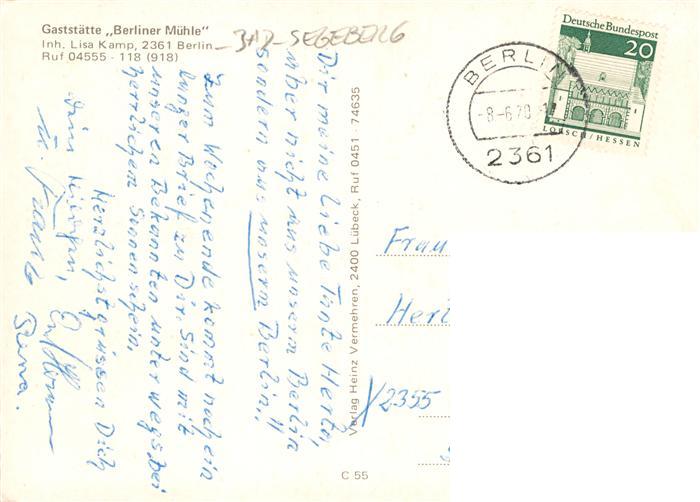 Gaststätte „Berliner Mühle"
Inh. Lisa Kamp, 2361 Berlin
Ruf 04555 - 118 (918)
BAD-SEGEBERG
Deutsche Bundespost
20
LORSCH/HESSEN
BERLIN
-8-6.70-
2361
Dir meine liebe Tante Herta,
aber nicht aus unserm Berlin
sondern aus unserm Berlin!!
Zum Wochenende kommt noch ein
langer Brief zu Dir. Sind mit
unseren Bekannten unterwegs, bei
herrlichem Sonnenschein.
Herzlichst grüssen Dich
Verlag Heinz Vermehren, 2400 Lübeck, Ruf 0451 · 74635
C 55
Frau
2355